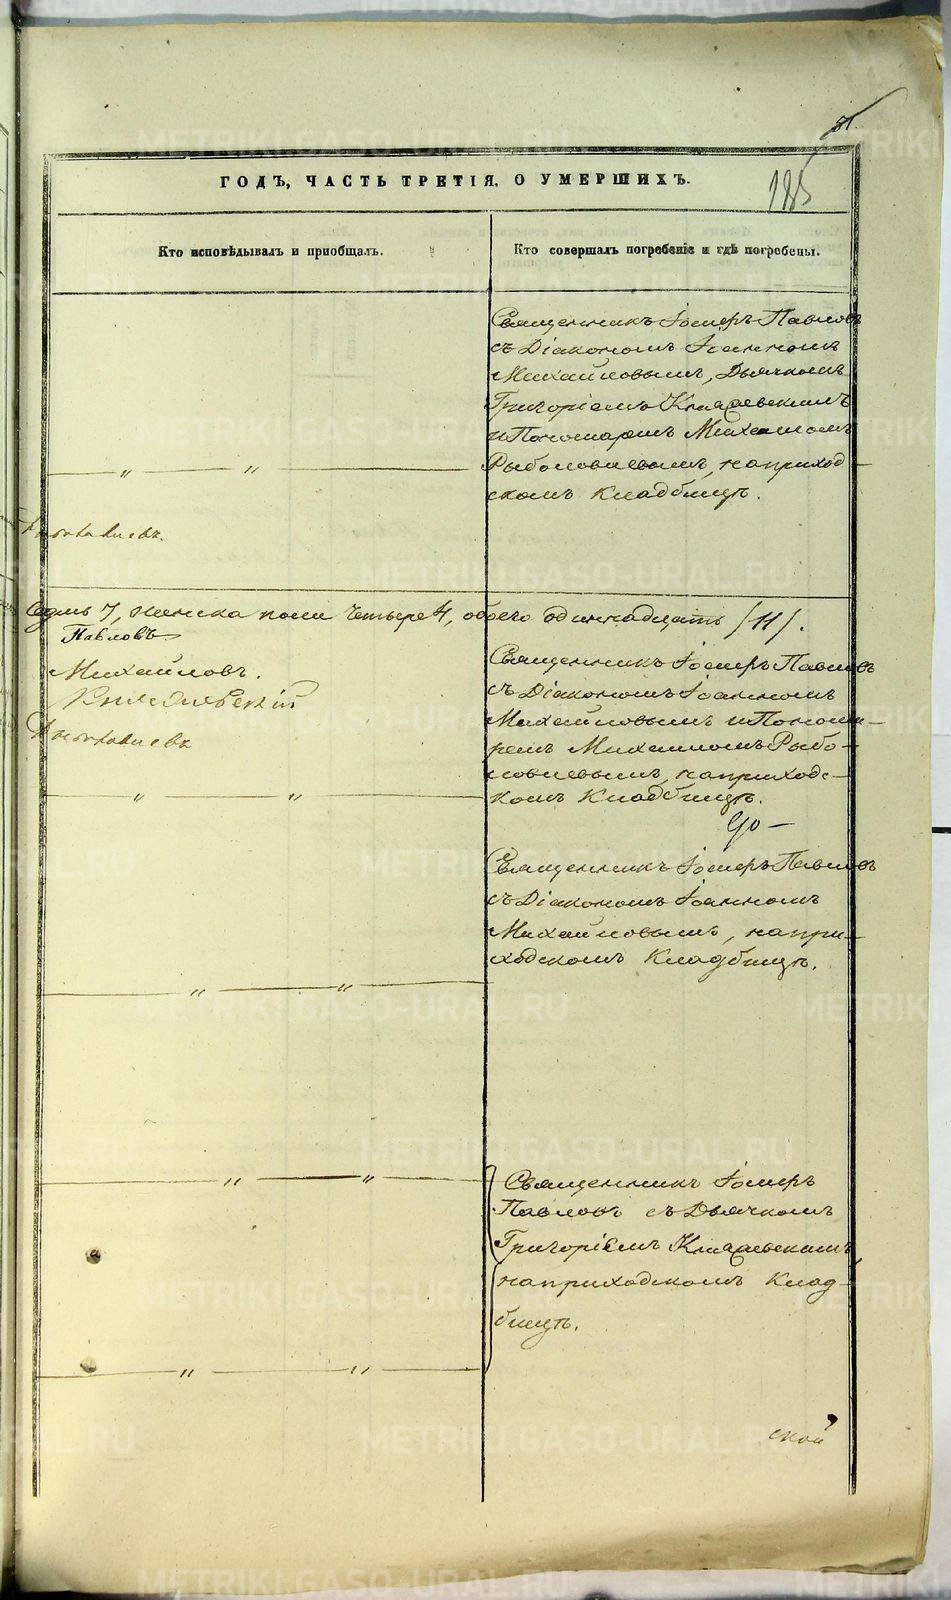 185
ГОДЪ, ЧАСТЬ ТРЕТІЯ, О УМЕРШИХЪ.
Кто исповѣдывалъ и пріобщалъ.
Кто совершалъ погребеніе и гдѣ погребены.
Священникъ Іосифъ Павловъ
съ Діакономъ Іоанномъ
Михайловымъ, Дьячкомъ
Григоріемъ
и Пономаремъ Михаиломъ
Рыболовлевымъ, на приход
скомъ кладбищѣ.
Седмь 7, женска пола четыре 4, обоего одиннадцать /11/.
Павловъ
Михайловъ.
Священникъ Іосифъ Павловъ
съ Діакономъ Іоанномъ
Михайловымъ и Понома-
ремъ Михаиломъ Рыбо-
ловлевымъ, на приходс-
комъ Кладбищѣ.
Священникъ Іосифъ Павловъ
съ Діакономъ Іоанномъ
Михайловымъ, на при-
ходскомъ Кладбищѣ.
Священникъ Іосифъ
Павловъ съ Дьячкомъ
Григоріемъ
на приходскомъ Клад-
бищѣ.
ской
METRIKI.GASO-URAL.RU